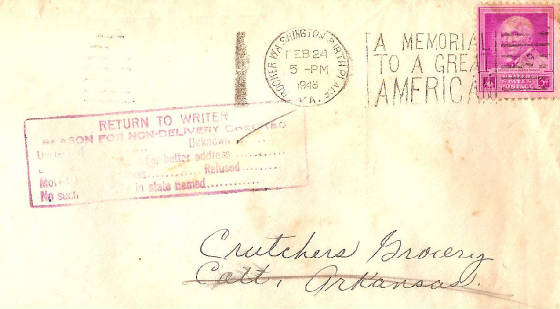 BOOKER WASHINGTON BIRTHPLACE
FEB 24
5 -PM
1948
VA.
A MEMORIAL
TO A GREAT
AMERICAN
UNITED
STATES
POSTAGE
RETURN TO WRITER
REASON FOR NON-DELIVERY CHECKED
Unknown
for better address
Refused
No such in state named
Crutchers Grocery
Catt, Arkansas.